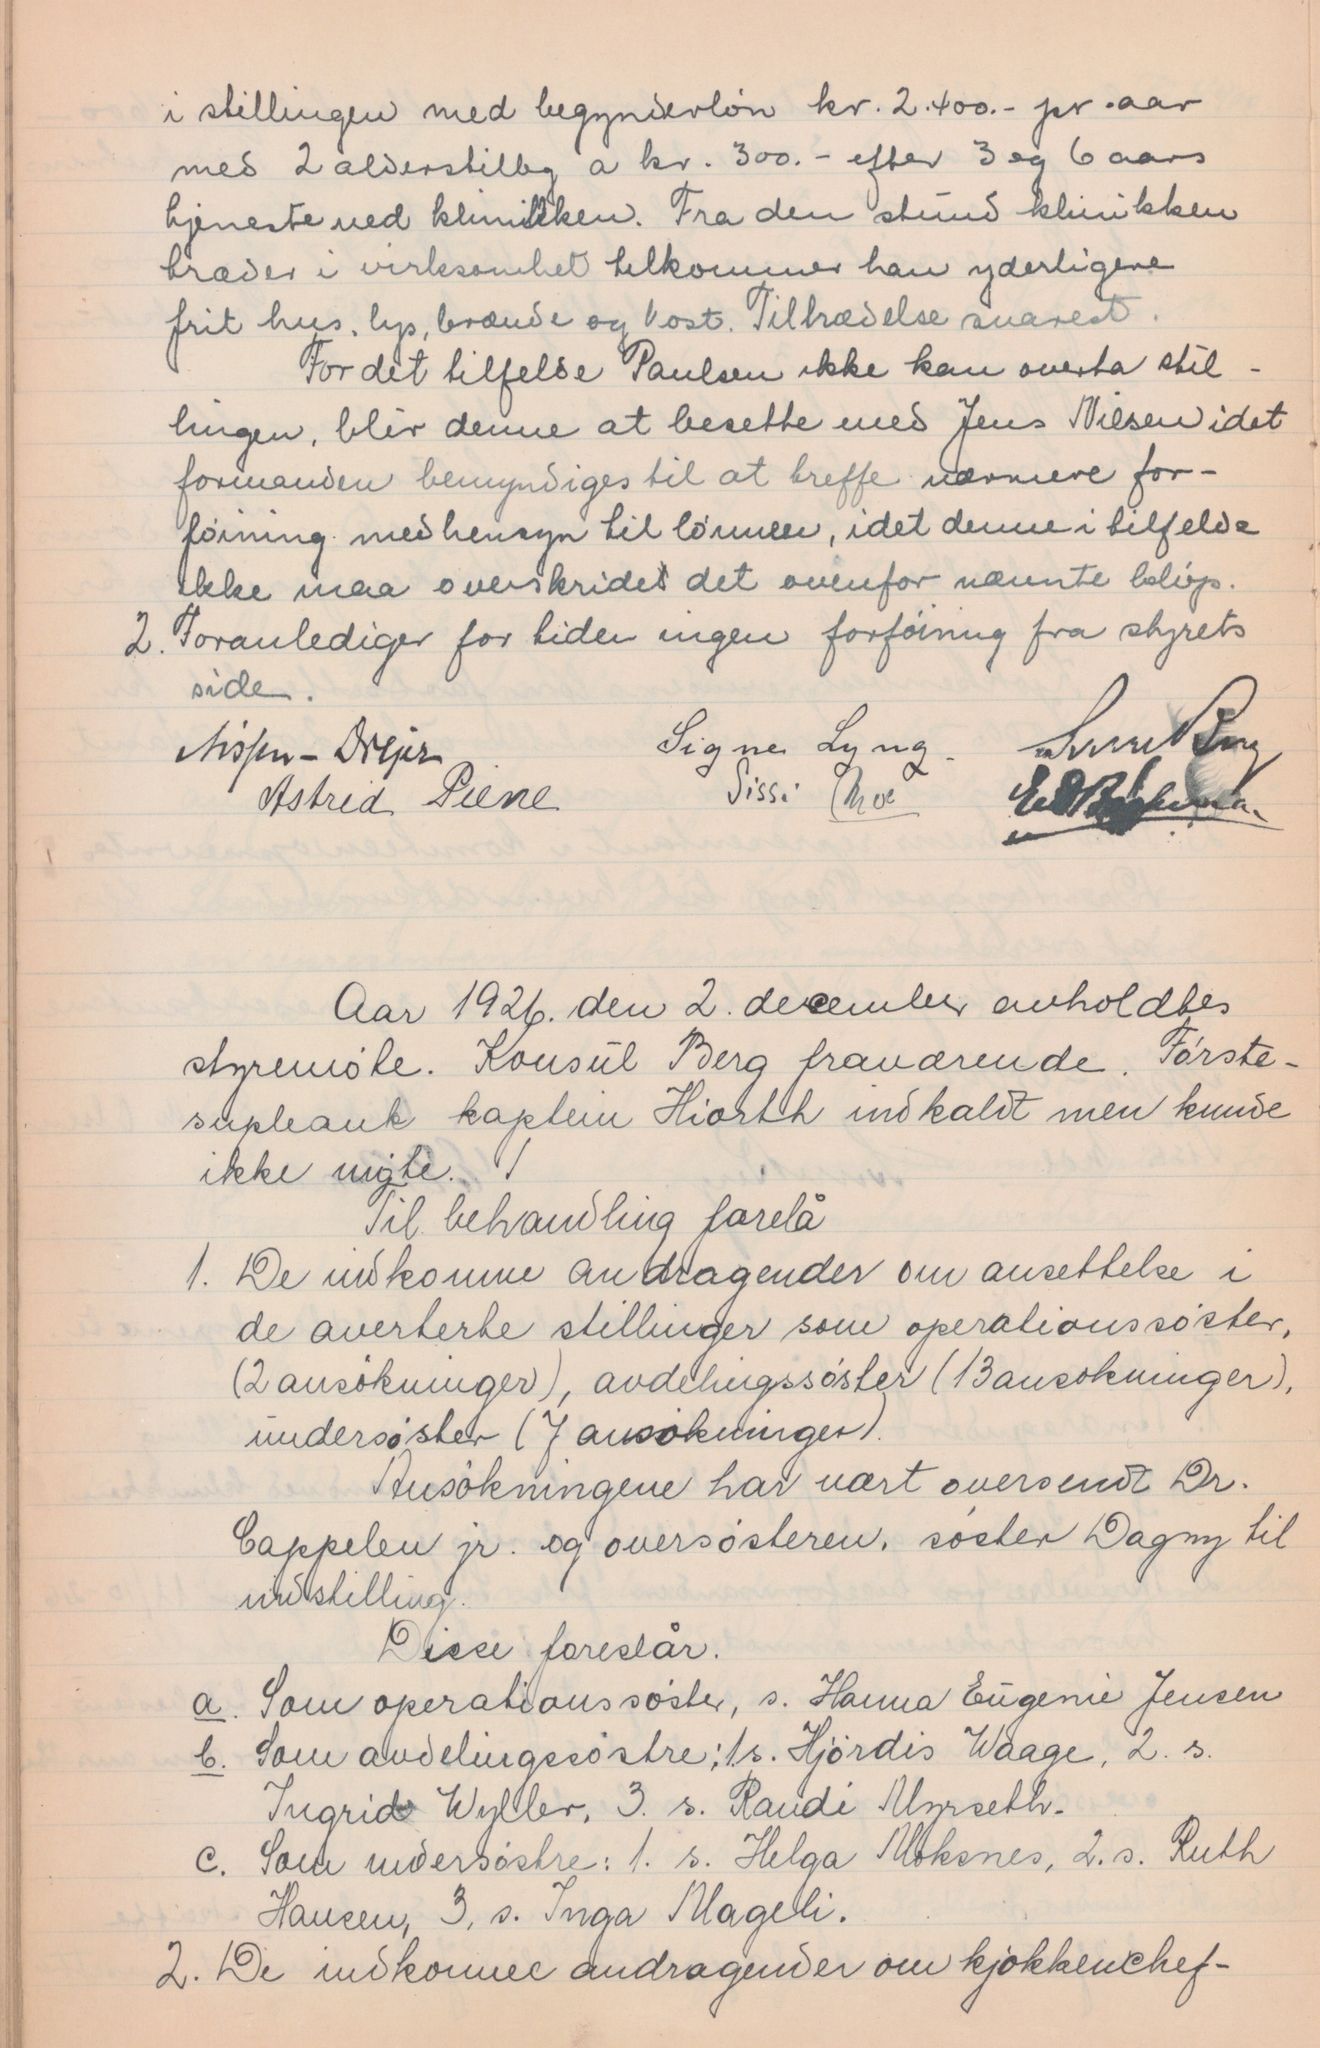 i stillingen med begynderløn kr. 2.400.- pr. aar
med 2 alderstilleg a kr. 300.- efter 3 og 6 aars
tjeneste ved klinikken. Fra den stund klinikken
træder i virksomhet tilkommer han yderligere
frit hus, lys, brænde og kost. Tiltrædelse snarest.
For det tilfelde Paulsen ikke kan overta stil-
lingen, blir denne at besette med Jens Nilsen idet
formanden bemyndiges til at treffe nærmere for-
føining medhensyn til lønnen, idet denne i tilfelde
ikke maa overskrides det ovenfor nævnte beløp.
2. Foranlediger for tiden ingen forføining fra styrets
side.
Nissen-Drejer Signe Lyng Berg
Astrid Piene Sissi Moe
Aar 1926. den 2. december avholdtes
styremøte. Konsul Berg fraværende. Første-
supleant kaptein Hiorth indkaldt men kunde
ikke møte.
Til behandling forelå
1. De indkomne andragender om ansettelse i
de averterte stillinger som operationssøster,
(2 ansøkninger), avdelingssøster (13 ansøkninger),
undersøster (7 ansøkninger).
Ansøkningene har vært oversendt Dr.
Cappelen jr. og oversøsteren, søster Dagny til
indstilling.
Disse foreslår.
a. Som operationssøster, s. Hanna Eugenie Jensen
b. Som avdelingssøstre; 1 s. Hjørdis Waage, 2. s.
Ingrid Wyller, 3. s. Randi Myrseth.
c. Som undersøstre: 1. s. Helga Moksnes, 2. s. Ruth
Hansen, 3, s. Inga Mageli.
2. De indkomne andragender om kjøkkenchef-